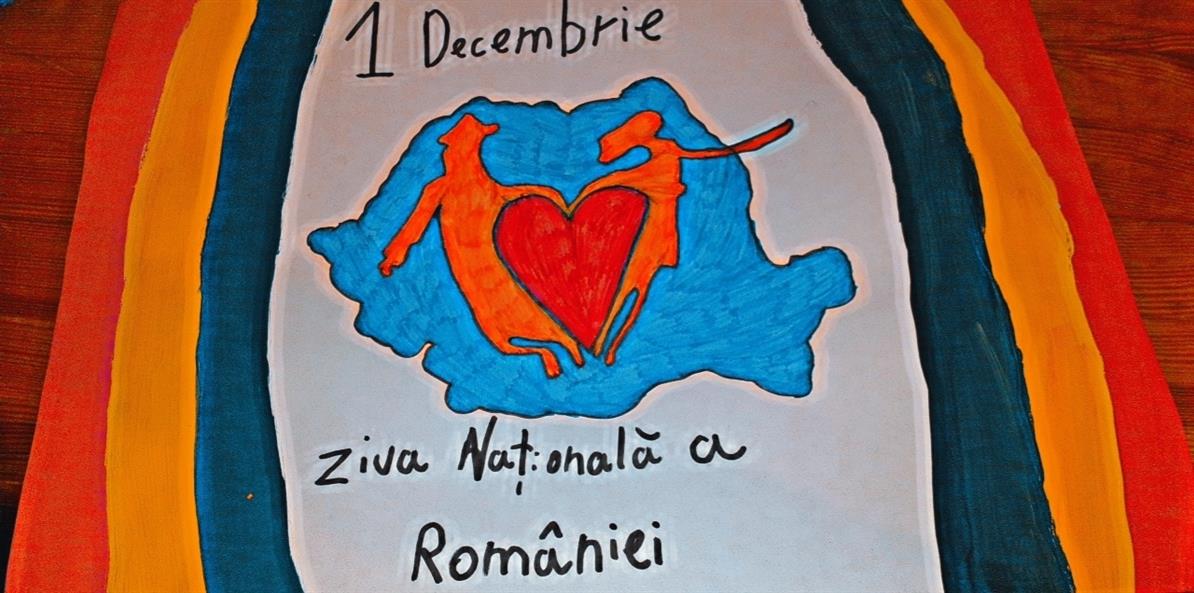 1 Decembrie
Ziva Națională a
României